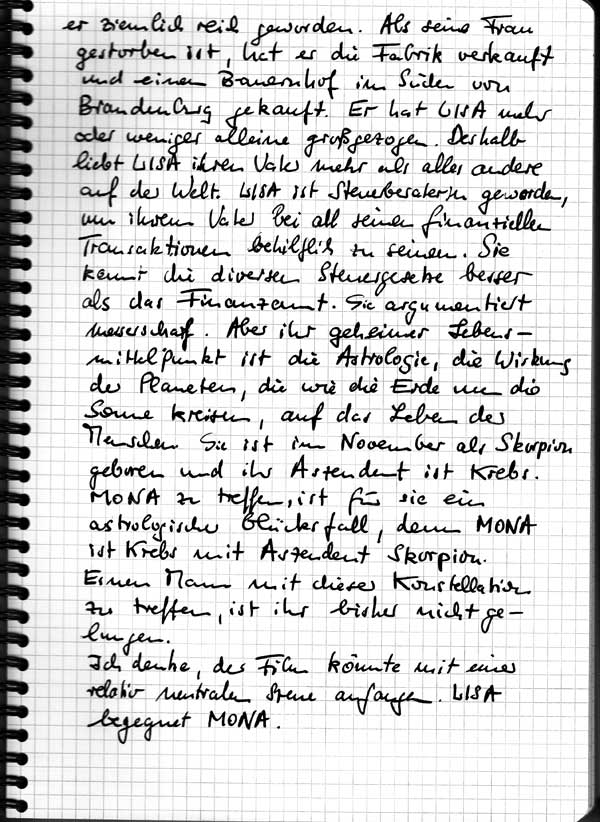 er ziemlich reich geworden. Als seine Frau
gestorben ist, hat er die Fabrik verkauft
und einen Bauernhof im Süden von
Brandenburg gekauft. Er hat LISA mehr
oder weniger alleine großgezogen. Deshalb
liebt LISA ihren Vater mehr als alles andere
auf der Welt. LISA ist Steuerberaterin geworden,
um ihrem Vater bei all seinen finanziellen
Transaktionen behilflich zu seinen. Sie
kennt die diversen Steuergesetze besser
als das Finanzamt. Sie argumentiert
messerscharf. Aber ihr geheimer Lebens-
mittelpunkt ist die Astrologie, die Wirkung
der Planeten, die wie die Erde um die
Sonne kreisen, auf das Leben der
Menschen. Sie ist im November als Skorpion
geboren und ihr Aszendent ist Krebs.
MONA zu treffen, ist für sie ein
astrologischer Glücksfall, denn MONA
ist Krebs mit Aszendent Skorpion.
Einen Mann mit dieser Konstellation
zu treffen, ist ihr bisher nicht ge-
lungen.
Ich denke, der Film könnte mit einer
relativ neutralen Szene anfangen. LISA
begegnet MONA.